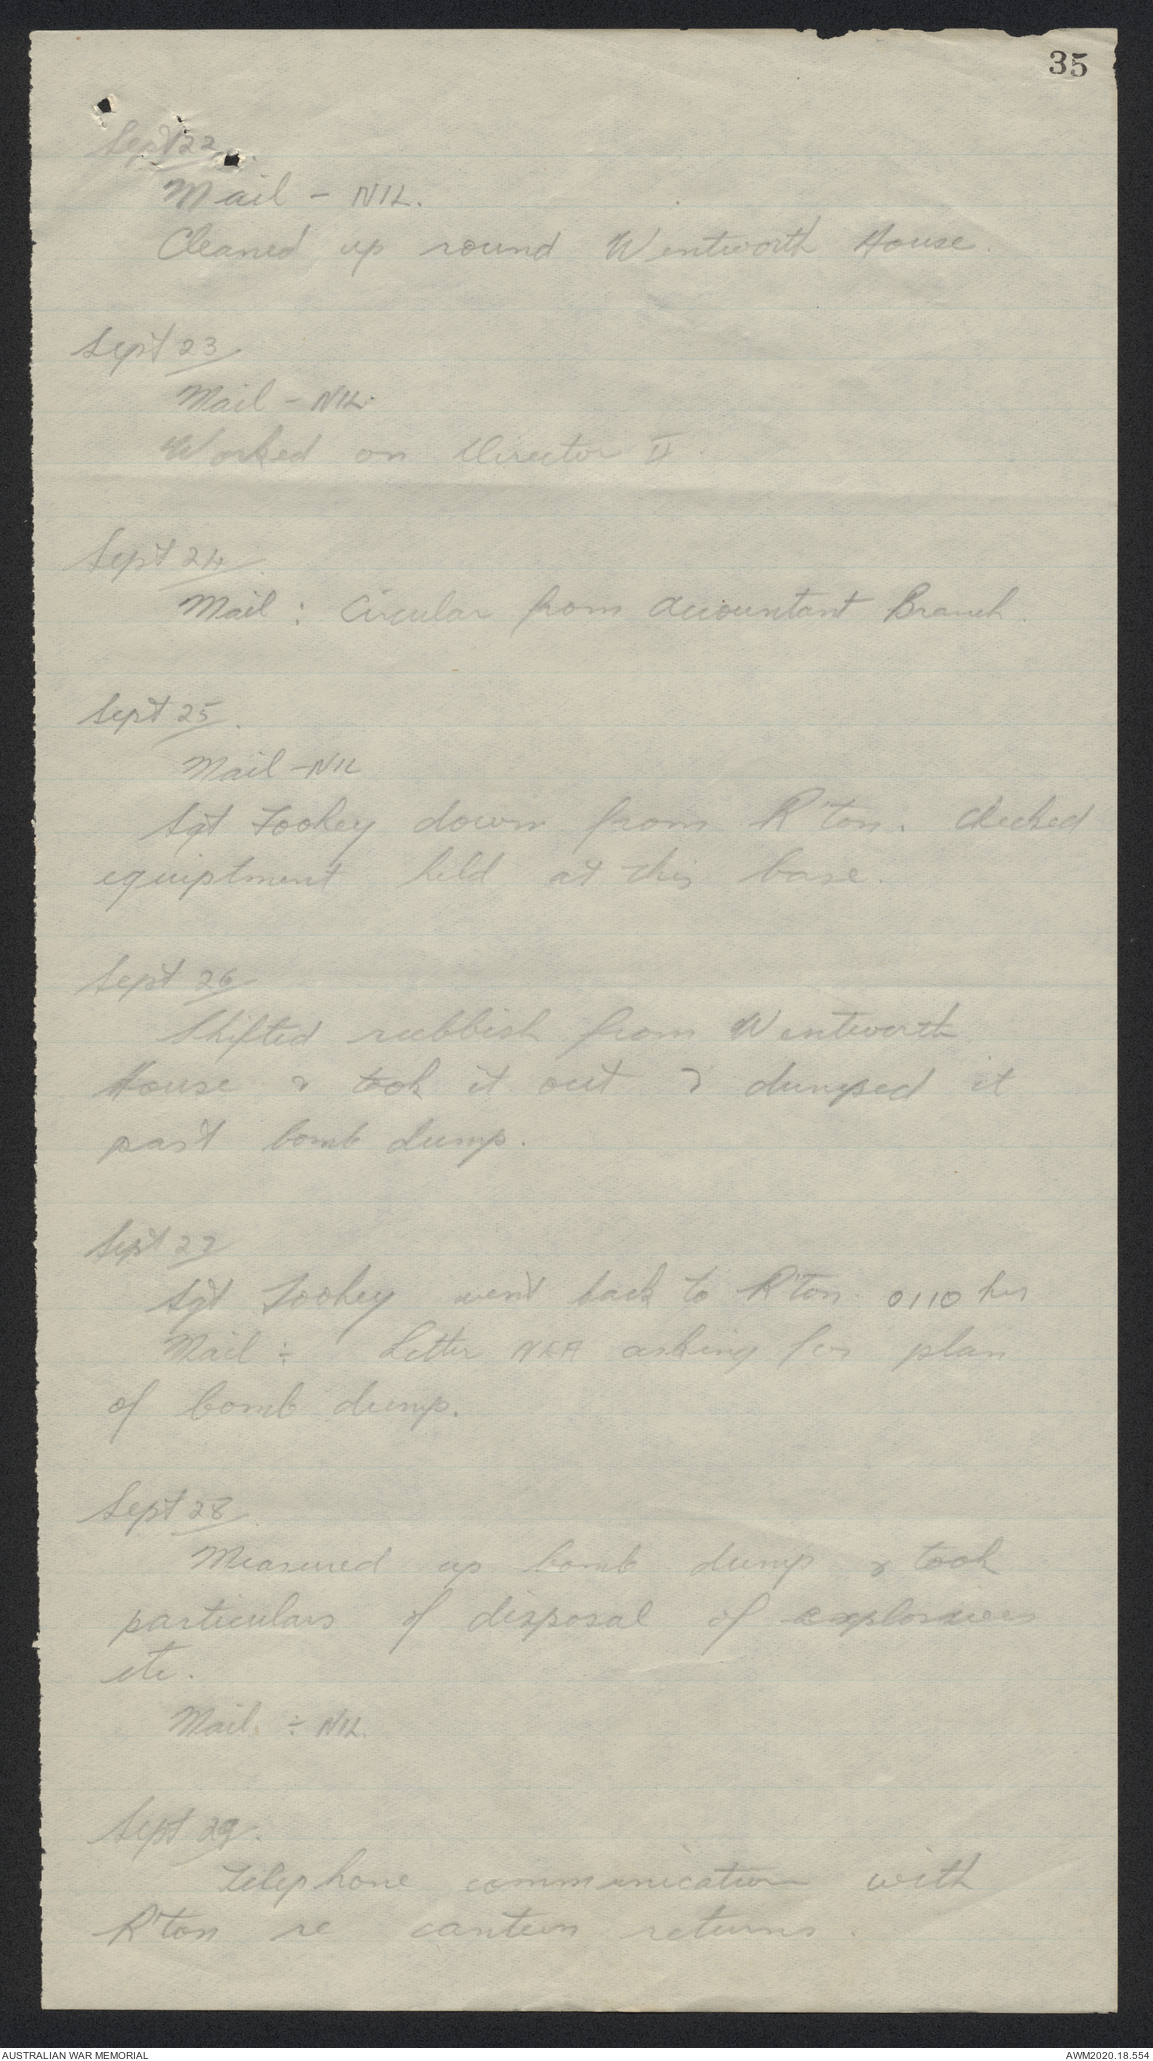 35
Sept 22
Mail - NIL.
Cleaned up round Wentworth House.
Sept 23
Mail - NIL.
Worked on Director II.
Sept 24
Mail : Circular from Accountant Branch.
Sept 25.
Mail - NIL
Sgt Toohey down from R'ton. Checked
equiptment held at this base.
Sept 26
Shifted rubbish from Wentworth
House & took it out & dumped it
past bomb dump.
Sept 27
Sgt Toohey went back to R'ton. 0110 hrs
Mail ÷ Letter NEA asking for plan
of bomb dump.
Sept 28.
Measured up bomb dump & took
particulars of disposal of explosives
etc.
Mail. ÷ NIL.
Sept 29.
Telephone communication with
R'ton re canteen returns.
AUSTRALIAN WAR MEMORIAL
AWM2020.18.554